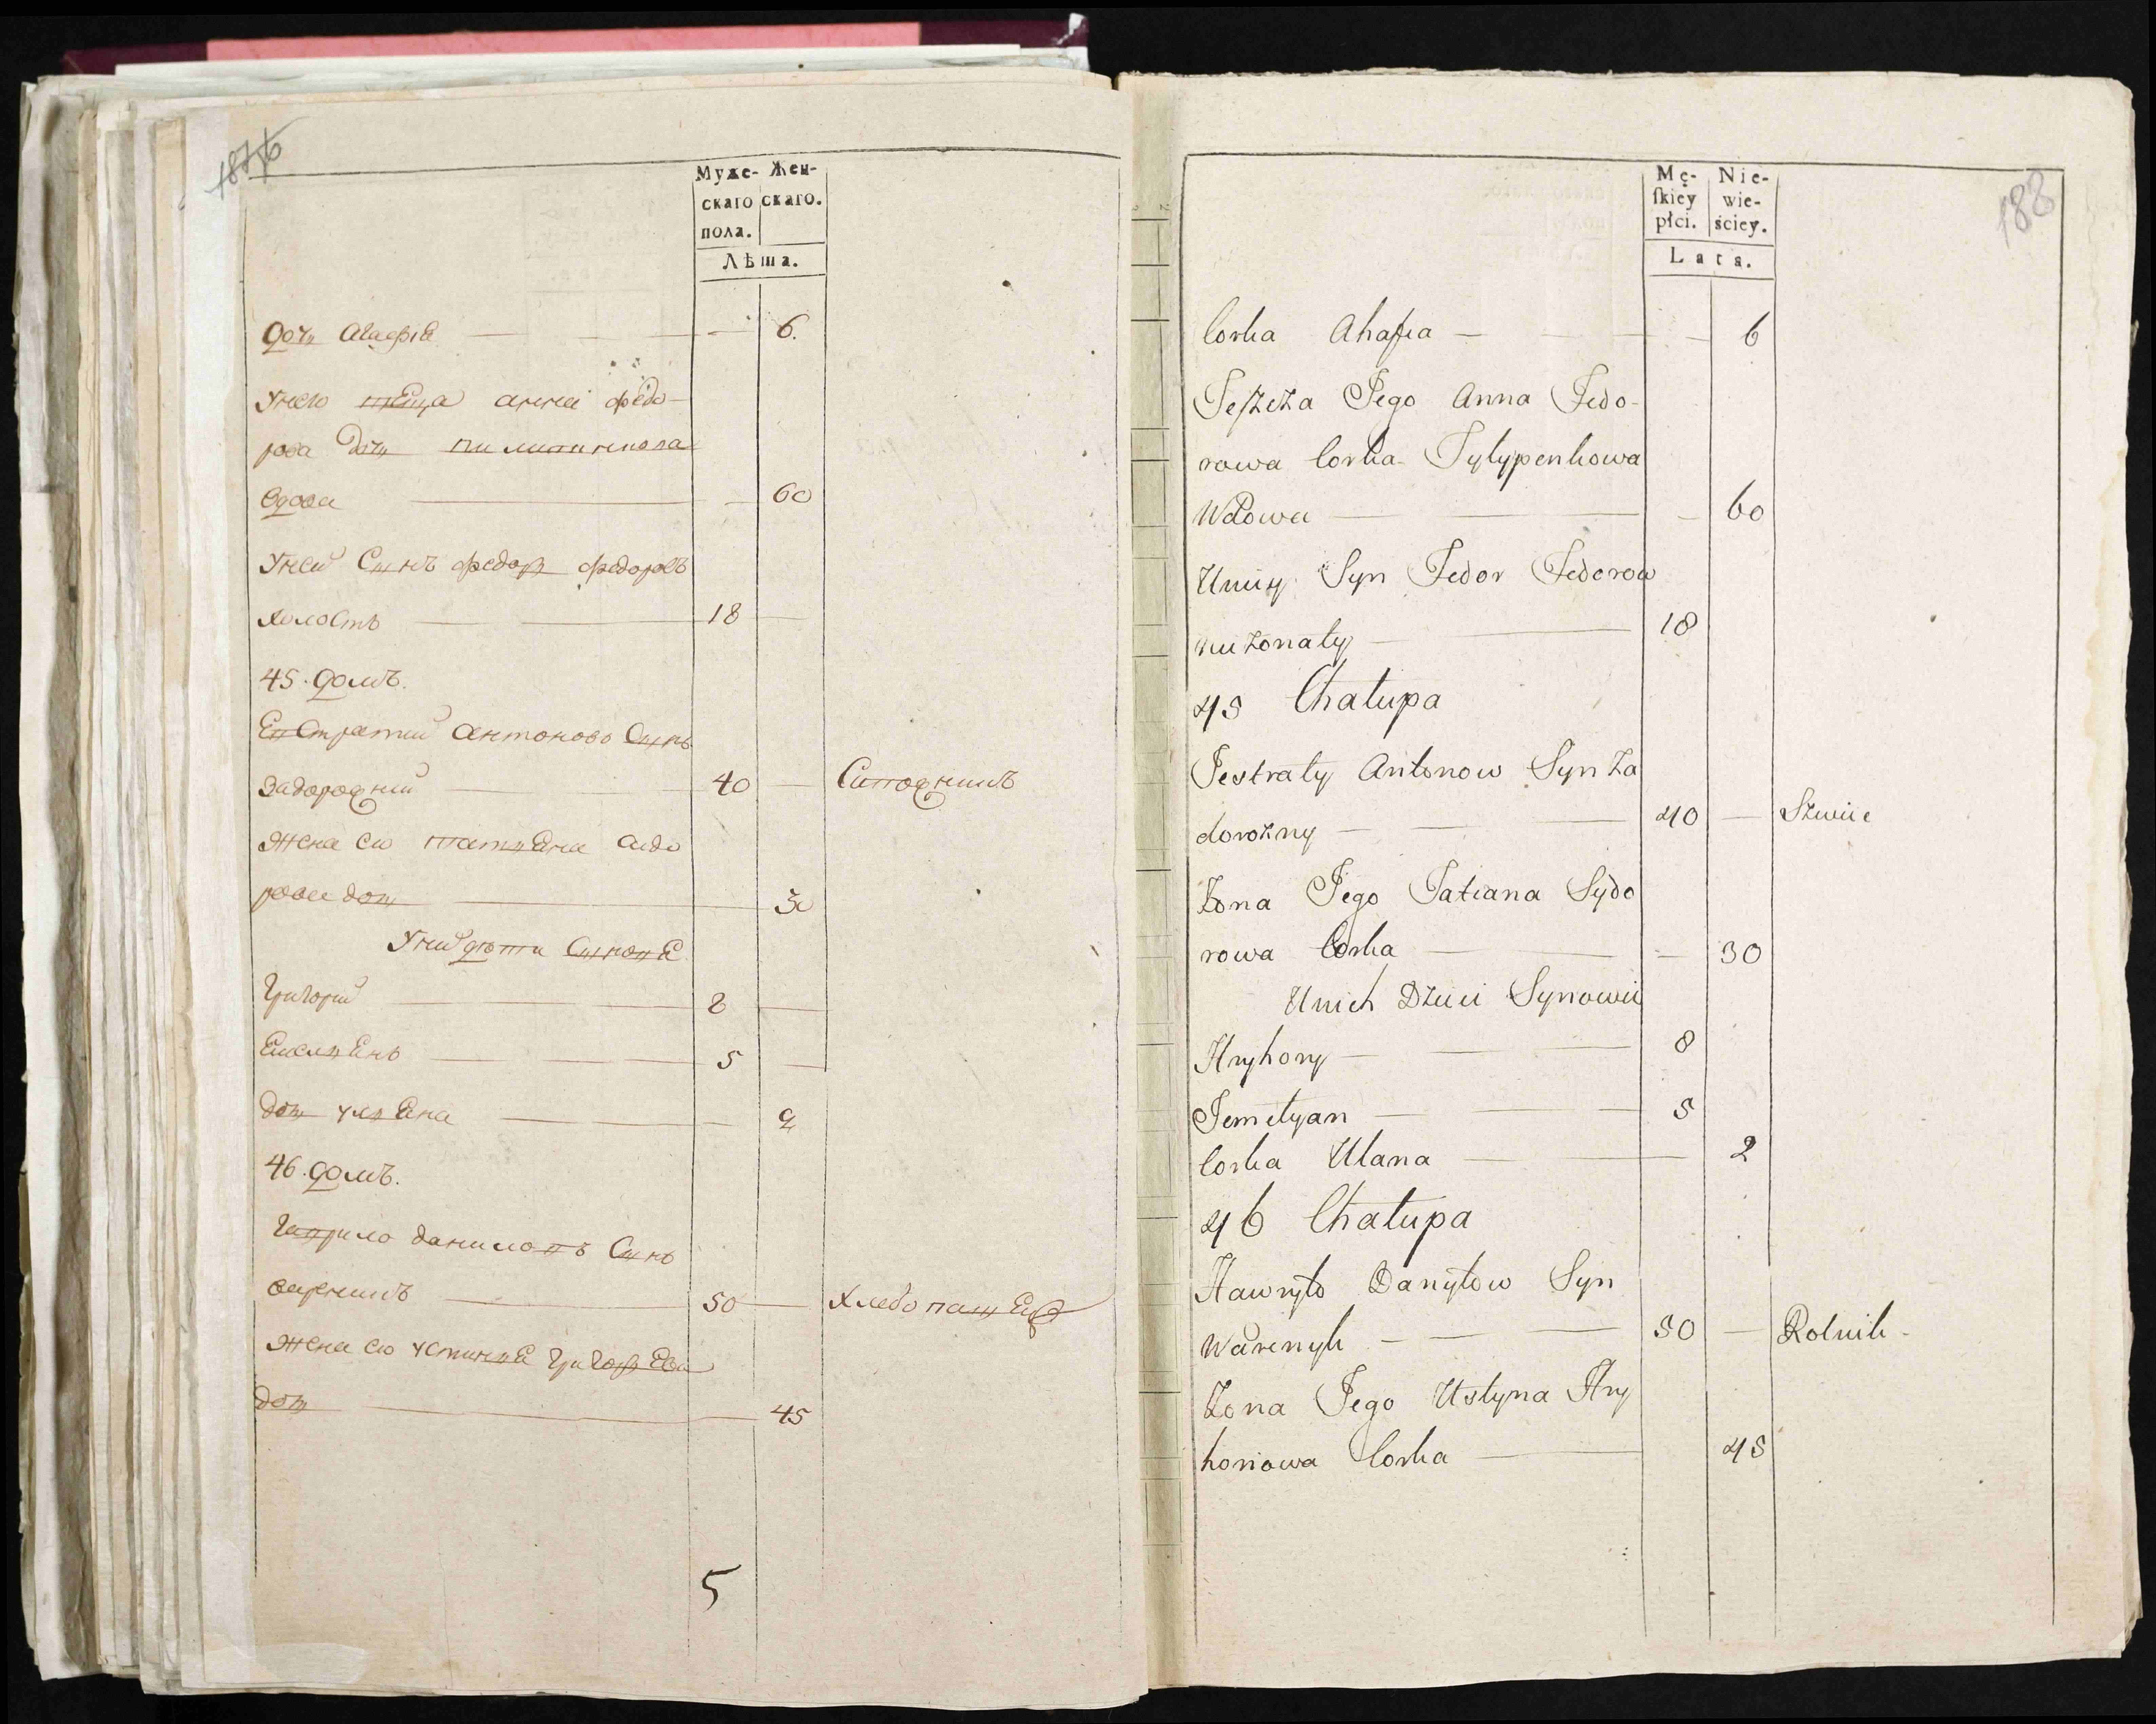 Муже- Жен-
скаго скаго.
пола.
Лѣта.
дочь Агафiя — — 6.
У него теща анна федо-
рова дочь Пилипенкова
вдова — — 60
У ней Сынъ федоръ федоровъ
холостъ — 18 —
45. домъ.
Евстратий Антоновъ Сынъ
Задорожний — 40 — Сапожникъ
Жена его татьяна сидо
рова дочь — 30
У них дѣти Сыновья
Григорий — 8 —
Емельянъ — 5 —
дочь ульяна — — 2
46. домъ.
Гаврило даниловъ Сынъ
вареникъ — 50 — Хлебопашецъ
Жена его устинья Григорьева
дочь — — 45
5
188
Mę- Nie-
skiey wie-
płci. ściey.
Lata.
Corka Ahafia — — 6
Teszcza Jego Anna Fedo-
rowa Corka Pylypenkowa
Wdowa — — 60
Uniey Syn Fedor Fedorow
niezonaty — 18
45 Chałupa
Jestraty Antonow Syn Za
dorozny — 40 — Szwiec
Zona Jego Tatiana Sydo
rowa Corka — — 30
Unich Dzieci Synowie
Hryhory — 8
Jemelyan — 5
Corka Ulana — — 2
46 Chałupa
Hawryło Danyłow Syn
Warenyk — 50 — Rolnik -
Zona Jego Ustyna Hry
horiowa Corka — 45